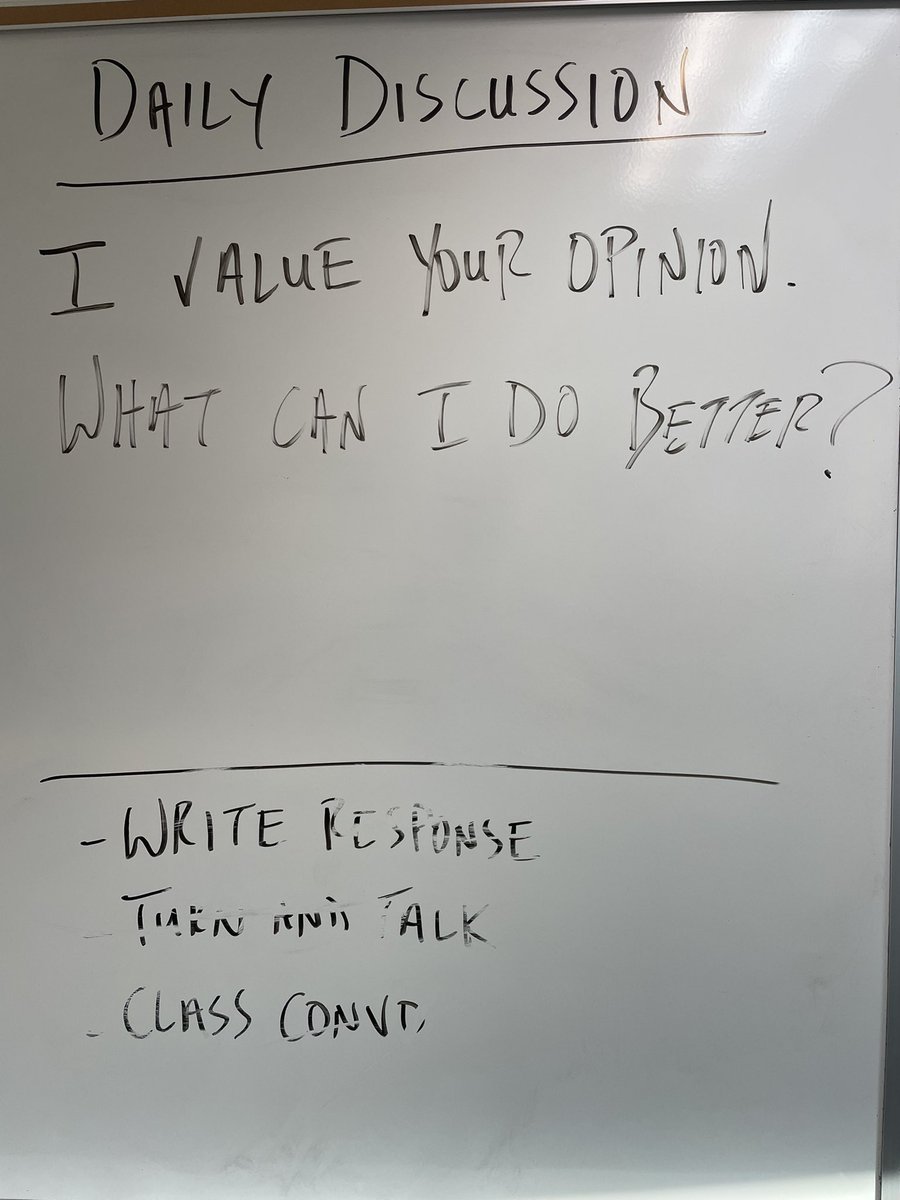 DAILY DISCUSSION
I VALUE YOUR OPINION.
WHAT CAN I DO BETTER?
- WRITE RESPONSE
- TURN AND TALK
- CLASS CONVO